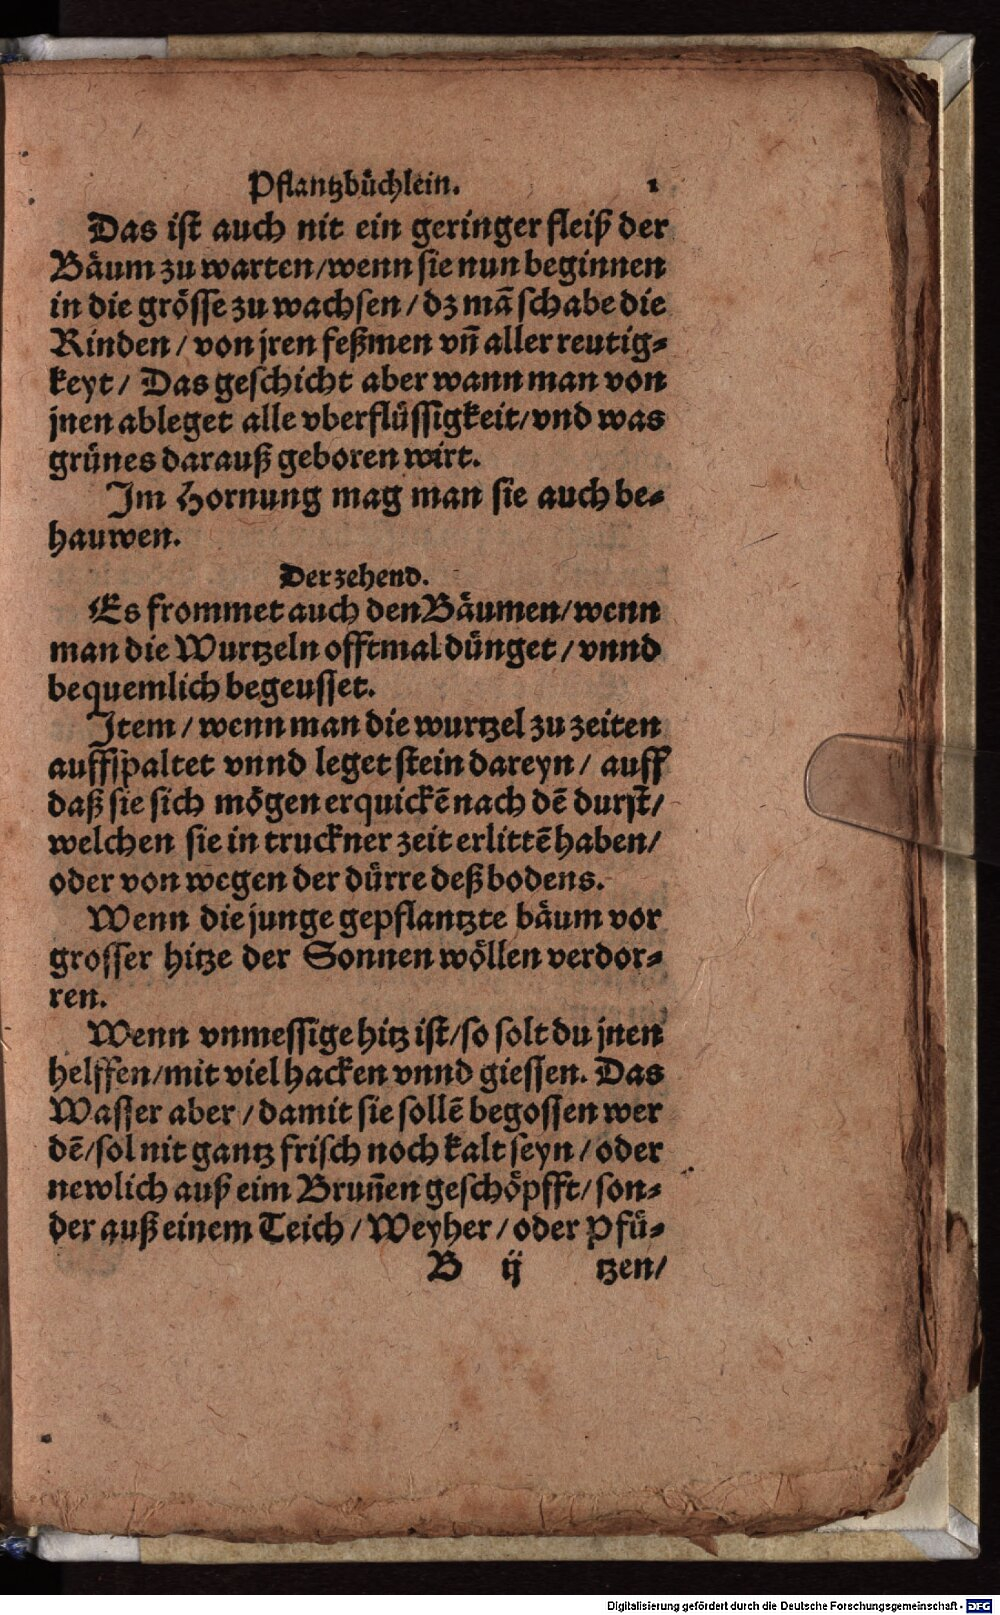 Pflantzbüchlein. 1
Das ist auch nit ein geringer fleiß der
Bäum zu warten/wenn sie nun beginnen
in die grösse zu wachsen/dz mā schabe die
Rinden/von jren feßmen vñ aller reutig-
keyt/ Das geschicht aber wann man von
jnen ableget alle vberflüssigkeit/vnd was
grünes darauß geboren wirt.
Im Hornung mag man sie auch be-
hauwen.
Der zehend.
Es frommet auch den Bäumen/wenn
man die Wurtzeln offtmal dünget/vnnd
bequemlich begeusset.
Item/wenn man die wurtzel zu zeiten
auffspaltet vnnd leget stein dareyn/ auff
daß sie sich mögen erquickē nach dē durst/
welchen sie in truckner zeit erlittē haben/
oder von wegen der dürre deß bodens.
Wenn die junge gepflantzte bäum vor
grosser hitze der Sonnen wöllen verdor-
ren.
Wenn vnmessige hitz ist/so solt du jnen
helffen/mit viel hacken vnnd giessen. Das
Wasser aber/damit sie sollē begossen wer
dē/sol nit gantz frisch noch kalt seyn/oder
newlich auß eim Bruñen geschöpfft/son-
der auß einem Teich/Weyher/oder Pfü-
B ij tzen/
Digitalisierung gefördert durch die Deutsche Forschungsgemeinschaft - DFG